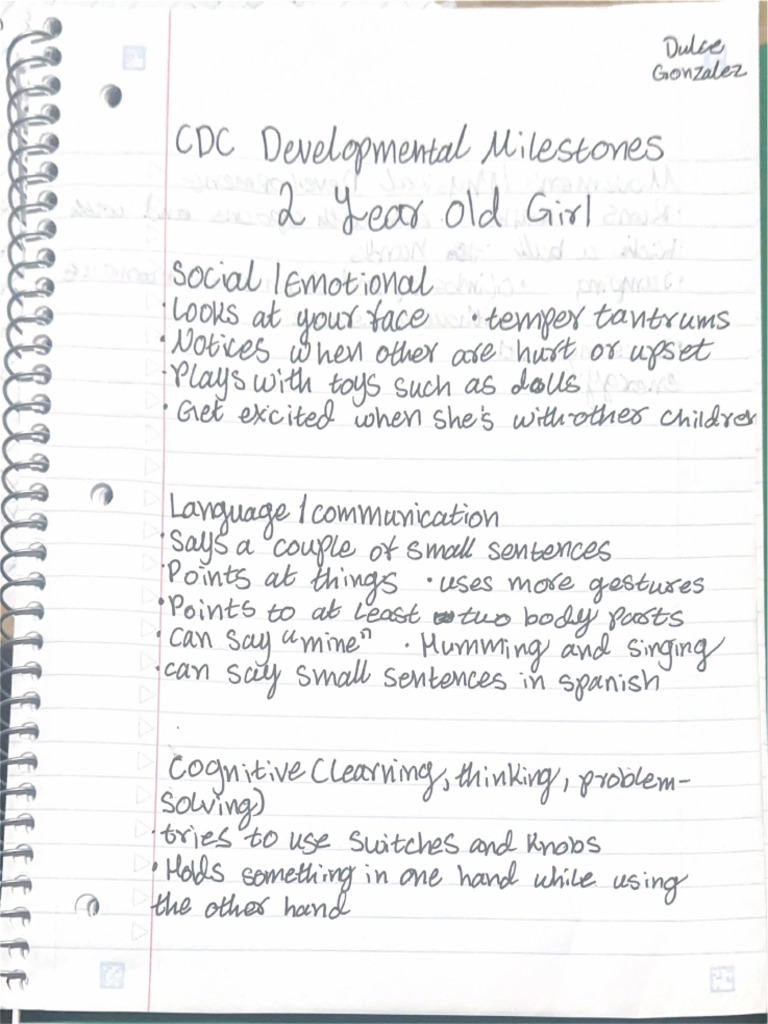 Dulce
Gonzalez
CDC Developmental Milestones
2 Year old Girl
Social / Emotional
· Looks at your face · temper tantrums
· Notices when other are hurt or upset
· Plays with toys such as dolls
· Get excited when she's with other children
Language / communication
· Says a couple of small sentences
· Points at things · uses more gestures
· Points to at least two body parts
· can say "mine" · Humming and singing
· can say small sentences in spanish
Cognitive (learning, thinking, problem-
solving)
· tries to use switches and knobs
· Holds something in one hand while using
the other hand